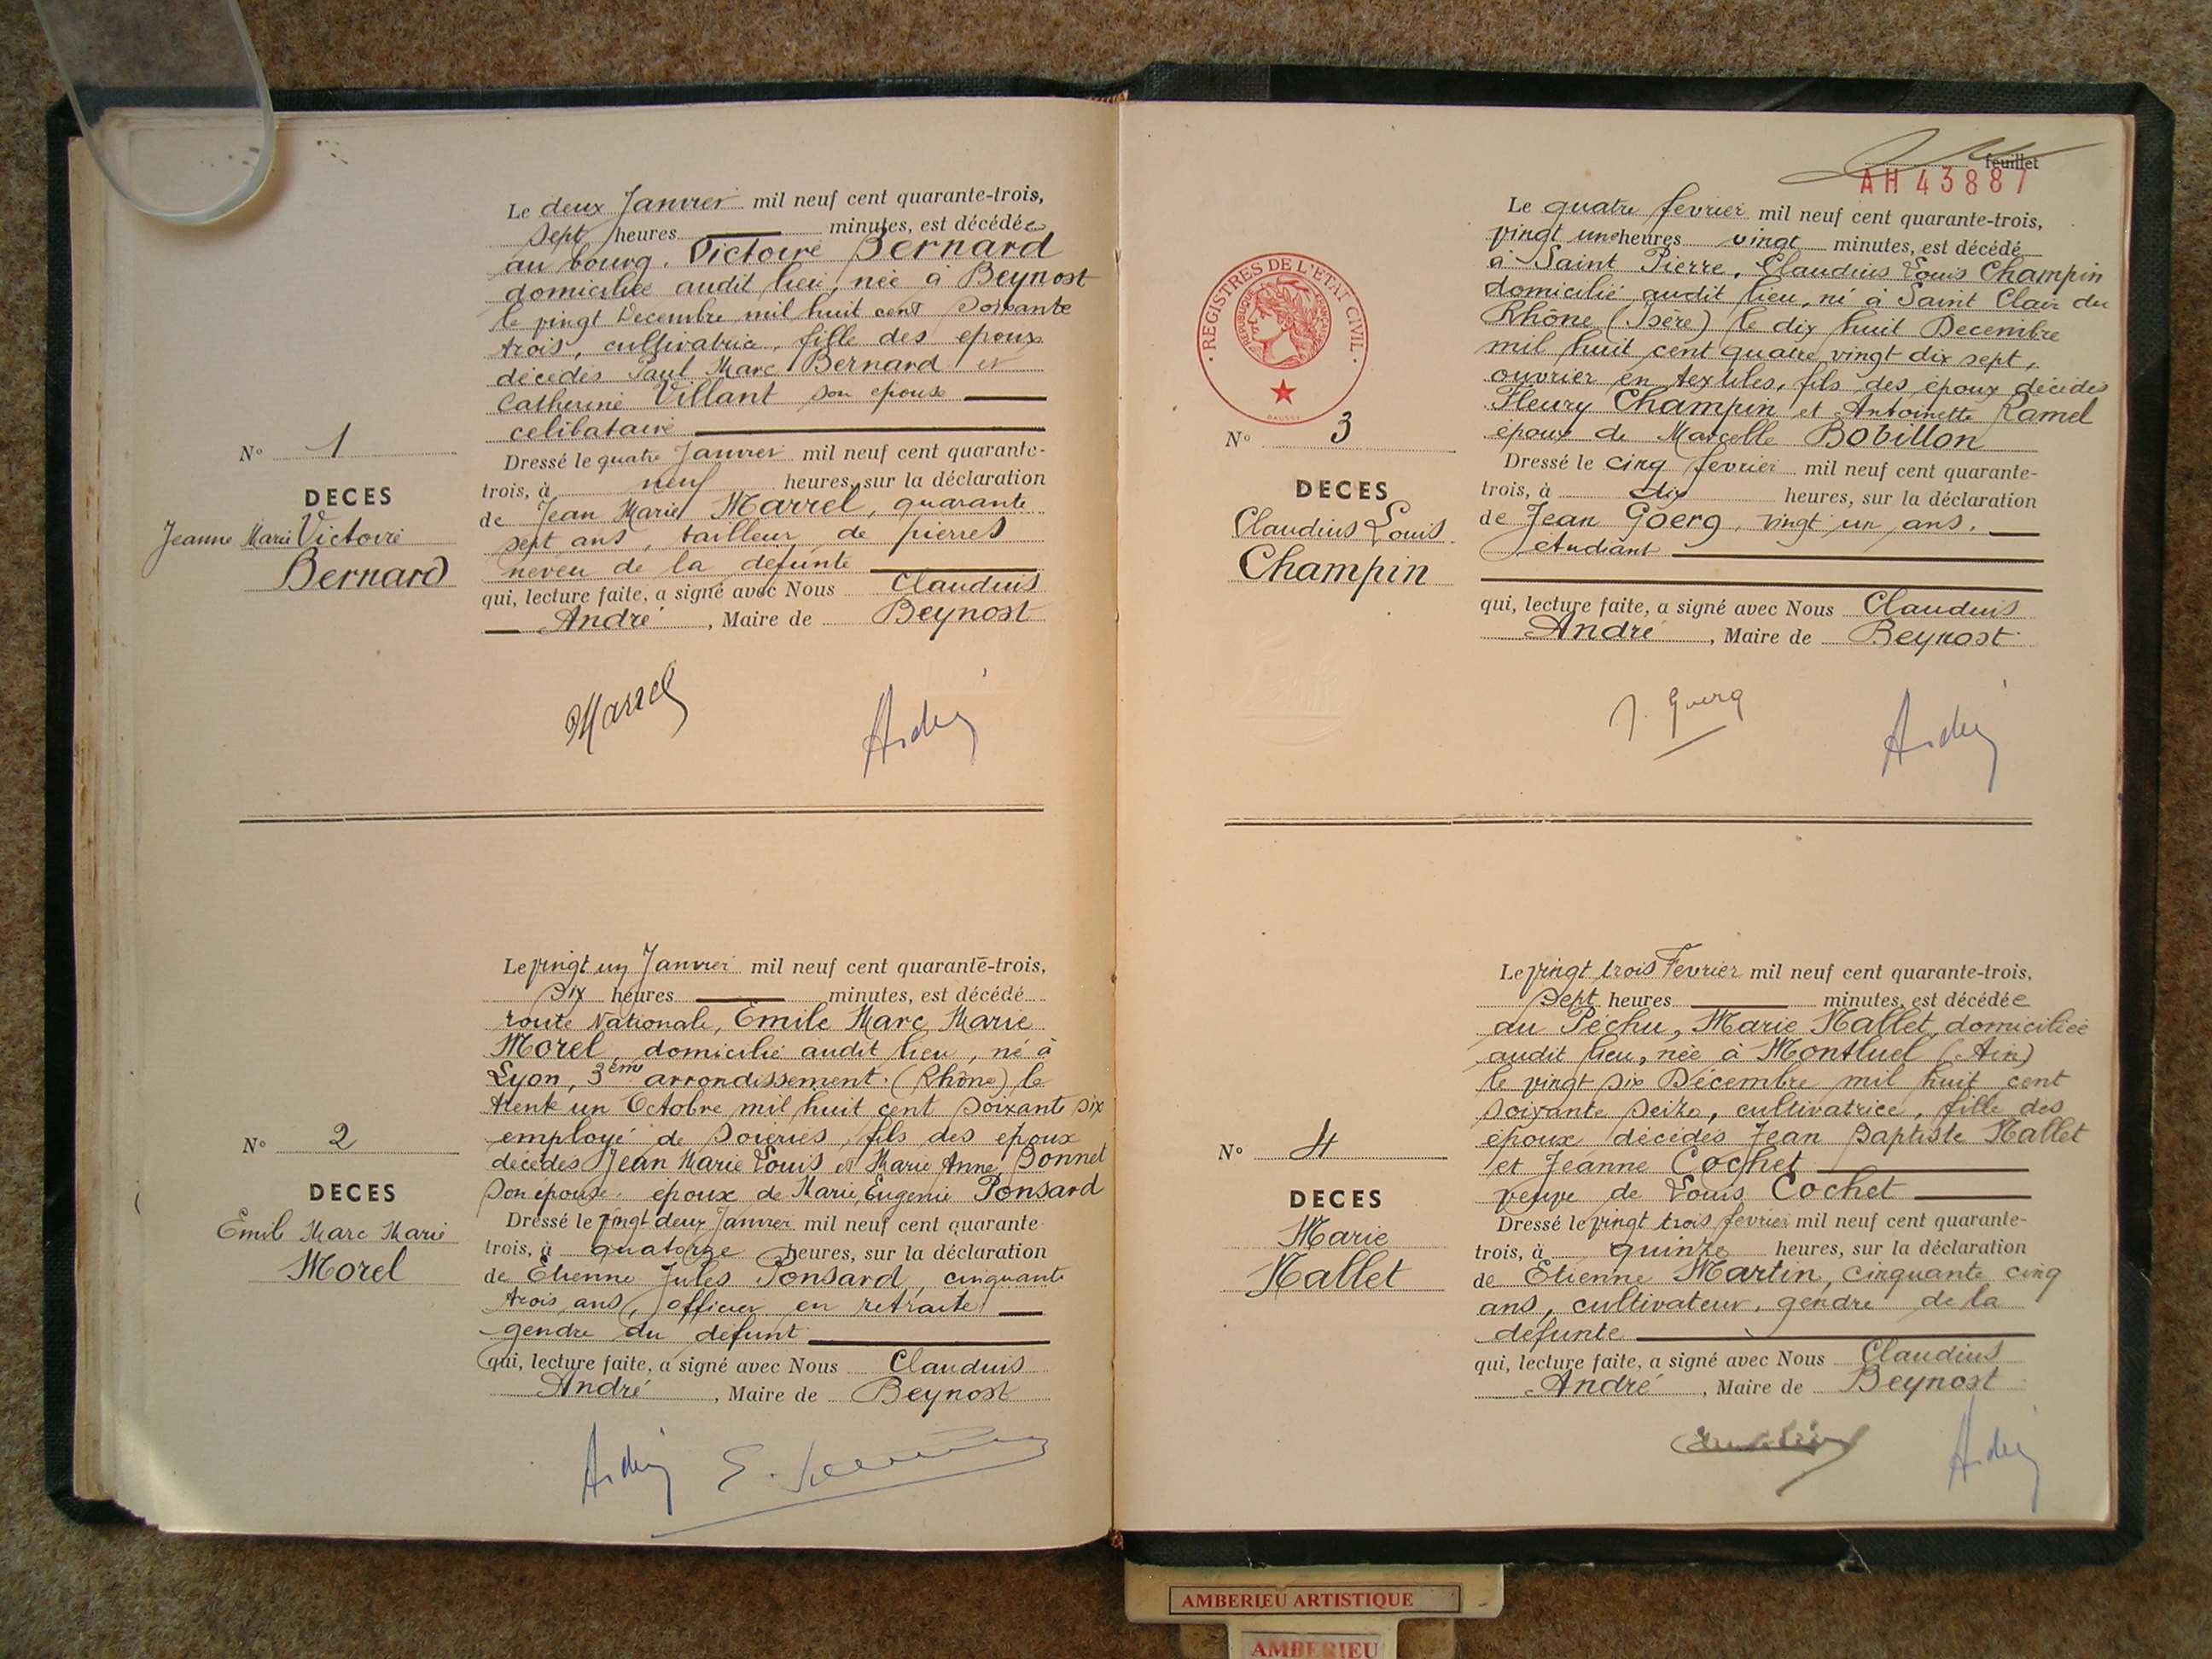 Le deux Janvier mil neuf cent quarante-trois,
sept heures minutes, est décédée
au bourg. Victoire Bernard
domiciliée audit lieu, née à Beynost
le vingt Decembre mil huit cent soixante
trois, cultivatrice, fille des epoux
décédés Paul Marc Bernard et
Catherine Villant son epouse
celibataire
N° 1
DECES
Jeanne Marie Victoire
Bernard
Dressé le quatre Janvier mil neuf cent quarante-
trois, à neuf heures, sur la déclaration
de Jean Marie Marrel, quarante
sept ans, tailleur de pierres
neveu de la défunte
qui, lecture faite, a signé avec Nous Claudius
André, Maire de Beynost
Marrel
André
Le vingt un Janvier mil neuf cent quarante-trois,
six heures minutes, est décédé
route Nationale, Emile Marc Marie
Morel, domicilié audit lieu, né à
Lyon, 3eme arrondissement (Rhône) le
trente un Octobre mil huit cent soixante six
employé de soieries, fils des epoux
décédés Jean Marie Louis et Marie Anne Bonnet
son épouse. époux de Marie Eugenie Ponsard
N° 2
DECES
Emile Marc Marie
Morel
Dressé le vingt deux Janvier mil neuf cent quarante-
trois, à quatorze heures, sur la déclaration
de Etienne Jules Ponsard, cinquante
trois ans, officier en retraite
gendre du défunt
qui, lecture faite, a signé avec Nous Claudius
André, Maire de Beynost
André
feuillet
AH 43887
REGISTRES DE L'ETAT CIVIL
REPUBLIQUE FRANÇAISE
Le quatre fevrier mil neuf cent quarante-trois,
vingt une heures vingt minutes, est décédé
à Saint Pierre, Claudius Louis Champin
domicilié audit lieu, né à Saint Clair du
Rhône (Isère) le dix huit Decembre
mil huit cent quatre vingt dix sept,
ouvrier en textiles, fils des époux décédés
Fleury Champin et Antoinette Ramel
époux de Marcelle Bobillon
N° 3
DECES
Claudius Louis
Champin
Dressé le cinq fevrier mil neuf cent quarante-
trois, à dix heures, sur la déclaration
de Jean Goerg, vingt un ans,
étudiant
qui, lecture faite, a signé avec Nous Claudius
André, Maire de Beynost
J. Goerg
André
Le vingt trois Fevrier mil neuf cent quarante-trois,
sept heures minutes, est décédée
au Péchu, Marie Nallet, domiciliée
audit lieu, née à Montluel (Ain)
le vingt six Décembre mil huit cent
soixante seize, cultivatrice, fille des
époux décédés Jean Baptiste Nallet
et Jeanne Cochet
veuve de Louis Cochet
N° 4
DECES
Marie
Nallet
Dressé le vingt trois fevrier mil neuf cent quarante-
trois, à quinze heures, sur la déclaration
de Etienne Martin, cinquante cinq
ans, cultivateur, gendre de la
défunte
qui, lecture faite, a signé avec Nous Claudius
André, Maire de Beynost
André
AMBERIEU ARTISTIQUE
AMBERIEU